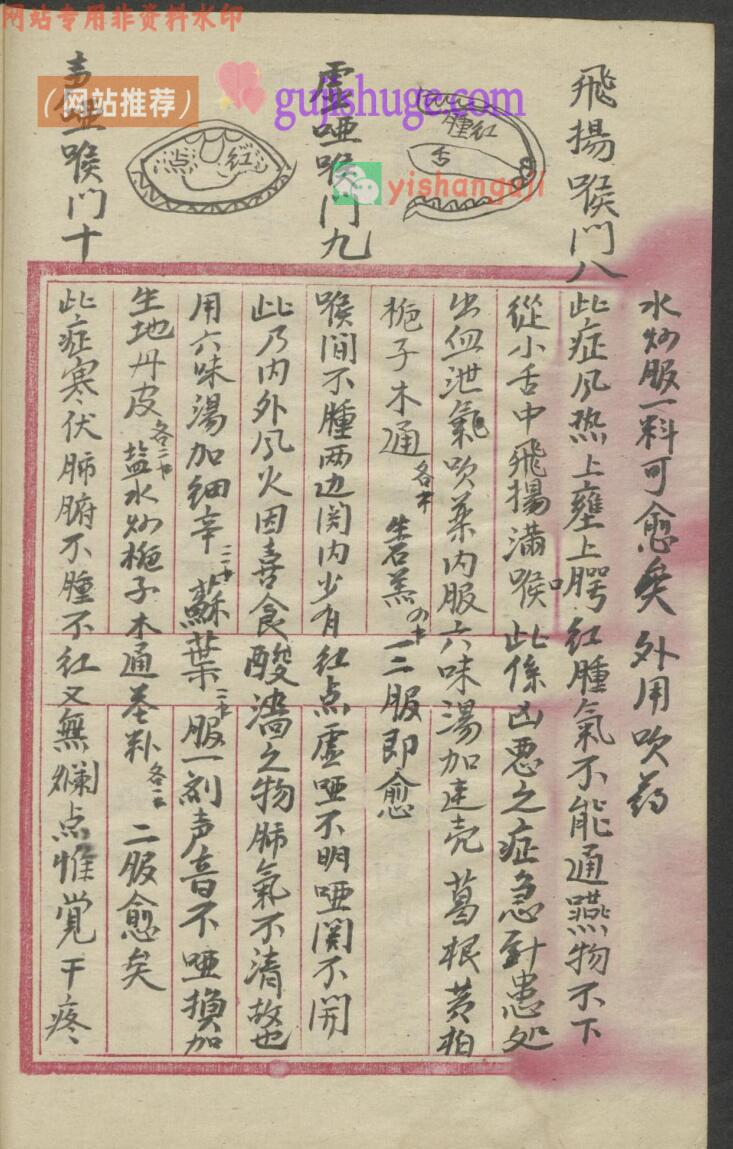 网站专用非资料水印
（网站推荐）
gujishuge.com
yishanguji
水炒服一料可愈矣 外用吹药
飛揚喉門八
腫红
舌
此症风热上壅上腭红腫氣不能通嚥物不下
從小舌中飛揚满喉 此係凶悪之症急針患处
出血泄氣吹藥内服六味湯加連壳葛根黄柏
栀子木通各 生石羔 一二服即愈
虚哑喉門九
红点
喉间不腫两边関内少有红点虚哑不明哑関不開
此乃内外风火因喜食酸濇之物肺氣不清故也
用六味湯加细辛 蘇葉 服一剤声音不哑換加
生地丹皮各二 盐水炒栀子木通 各二 二服愈矣
声哑喉门十
此症寒伏肺腑不腫不红又無爛点惟覚干疼